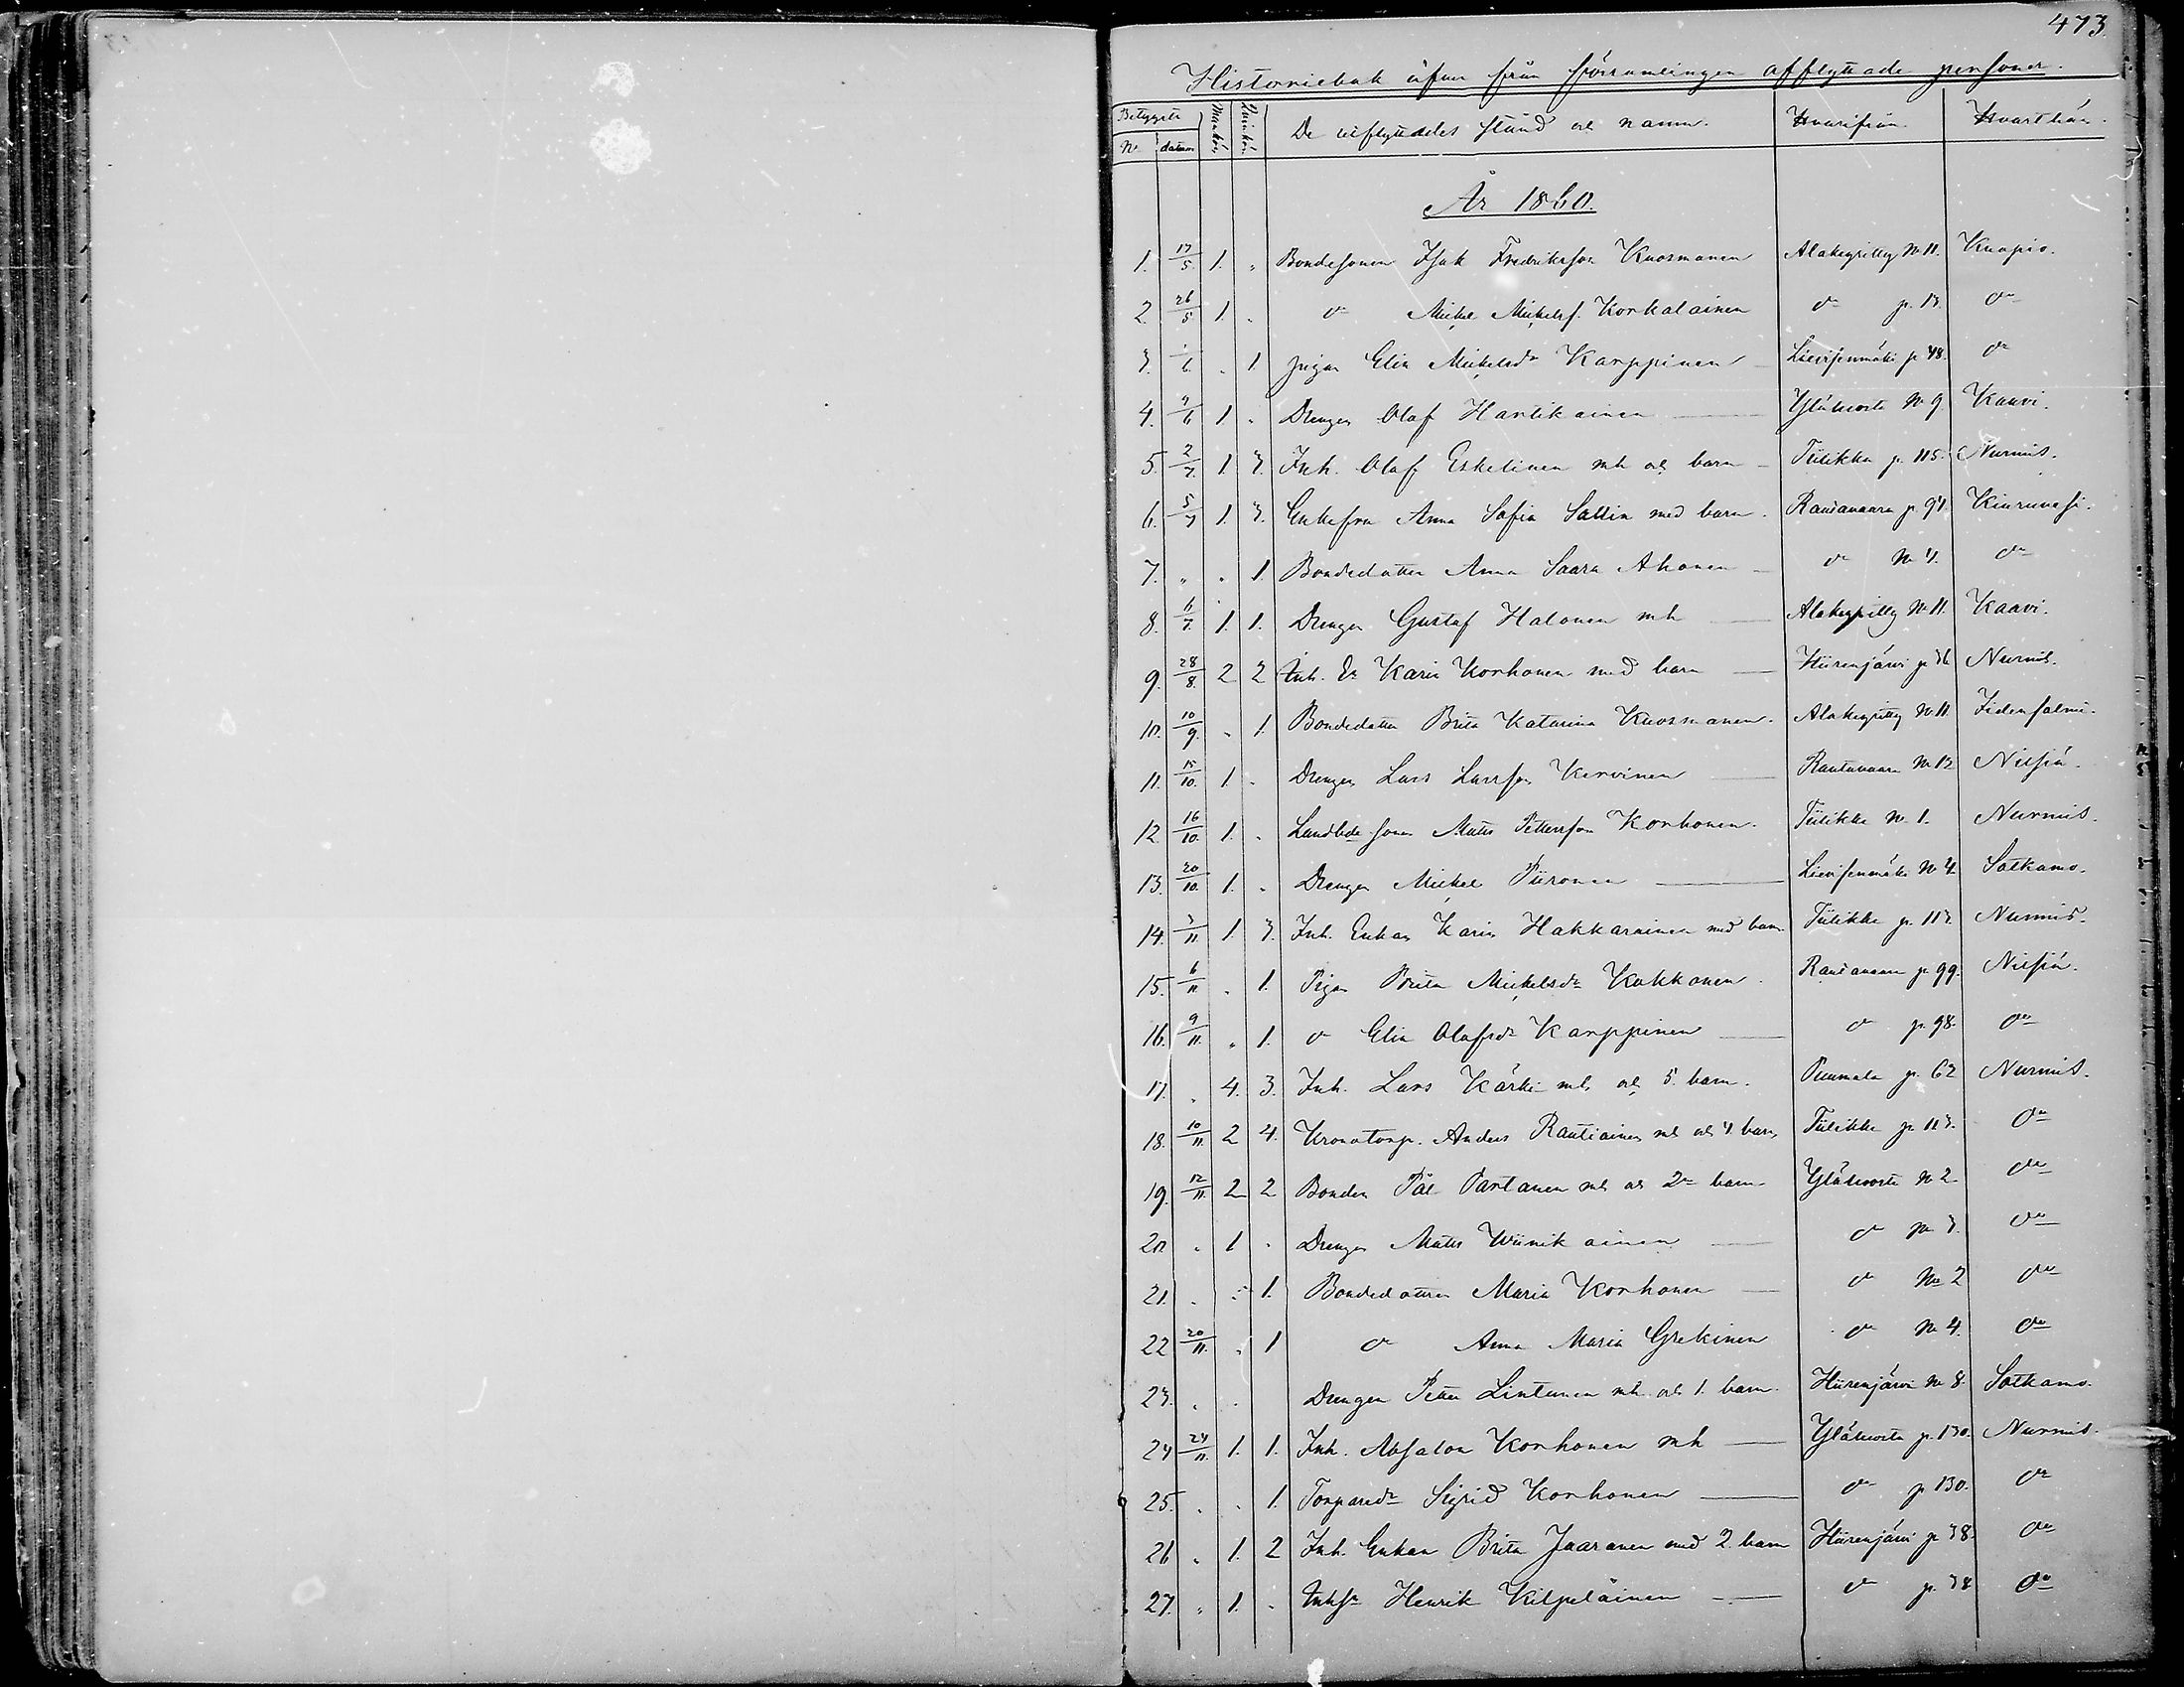 473
Historiebok öfver från församlingen afflyttade personer.
Betygets Mankön Qvinkön De utflyttades stånd och namn. Hvarifrån. Hvarthän.
No datum
År 1860.
1. 17/5. 1. " Bondesonen Isak Fredriksson Kuosmanen Alakeyritty No 11. Kuopio.
2. 26/5. 1. " do Mickel Mickelss. Korkalainen do p. 13. do
3. /6. " 1 pigan Elin Mickelsdr Karppinen p. 48. do
4. /6 1 " Drengen Olaf Hartikainen No 9. Kaavi.
5. 2/7. 1 3. Inh. Olaf Eskelinen mh och barn Tiilikka p. 115. Nurmis.
6. 5/7 1. 3. Enkefru Anna Sofia Sallin med barn. Rautavaara p. 94. Kiuruvesi.
7. " " 1. Bondedotter Anna Saara Ahonen do No 4. do
8. 6/7. 1. 1. Drengen Gustaf Halonen mh Alakeyritty No 11. Kaavi.
9. 28/8. 2 2 Inh. Karin Korhonen med barn Hiirenjärvi p. 36 Nurmis.
10. 10/9. " 1. Bondedotter Brita Katarina Kuosmanen. Alakeyritty No 11. Idensalmi.
11. 15/10. 1. " Drengen Lars Larsson Kervinen Rautavaara No 12 Nilsiä.
12 16/10. 1. " Landbdesonen Matts Pettersson Korhonen. Tiilikka No 1. Nurmis.
13. 20/10. 1. " Drengen Mickel Piironen No 4. Sotkamo.
14. 3/11. 1. 3. Inh. Enkan Karin Hakkarainen med barn Tiilikka p. 113. Nurmis.
15. 6/11. " 1. Pigan Brita Mickelsdr Kokkonen. Rautavaara p. 99. Nilsiä.
16. 9/11. " 1. do Elin Olafsdr Karppinen do p. 98. do
17. " 4. 3. Inh. Lars Kärki mh och 5 barn. Puumala p. 62 Nurmis.
18. 10/11. 2 4. Kronotorp. Anders Rautiainen mh och 4 barn Tiilikka p. 113. do
19. 12/11. 2 2 Bonden Pål Partanen mh och 2ne barn No 2. do
20. " 1. " Drengen Matts Wiinikainen do No 3. do
21. " " 1. Bondedottren Maria Korhonen do No 2 do
22 20/11. " 1 do Anna Maria do No 4. do
23. " " Drengen Petter Lintunen mh och 1. barn. Hiirenjärvi No 8. Sotkamo.
24 24/11. 1. 1. Inh. Absalon Korhonen mh p. 130. Nurmis.
25. " " 1. Torparedr Sigrid Korhonen do p 130. do
26 " 1. 2 Inh. Enkan Brita Jaaranen med 2 barn Hiirenjärvi p. 38. do
27. " 1. " Inhs. Henrik Kilpeläinen do p. 34 do